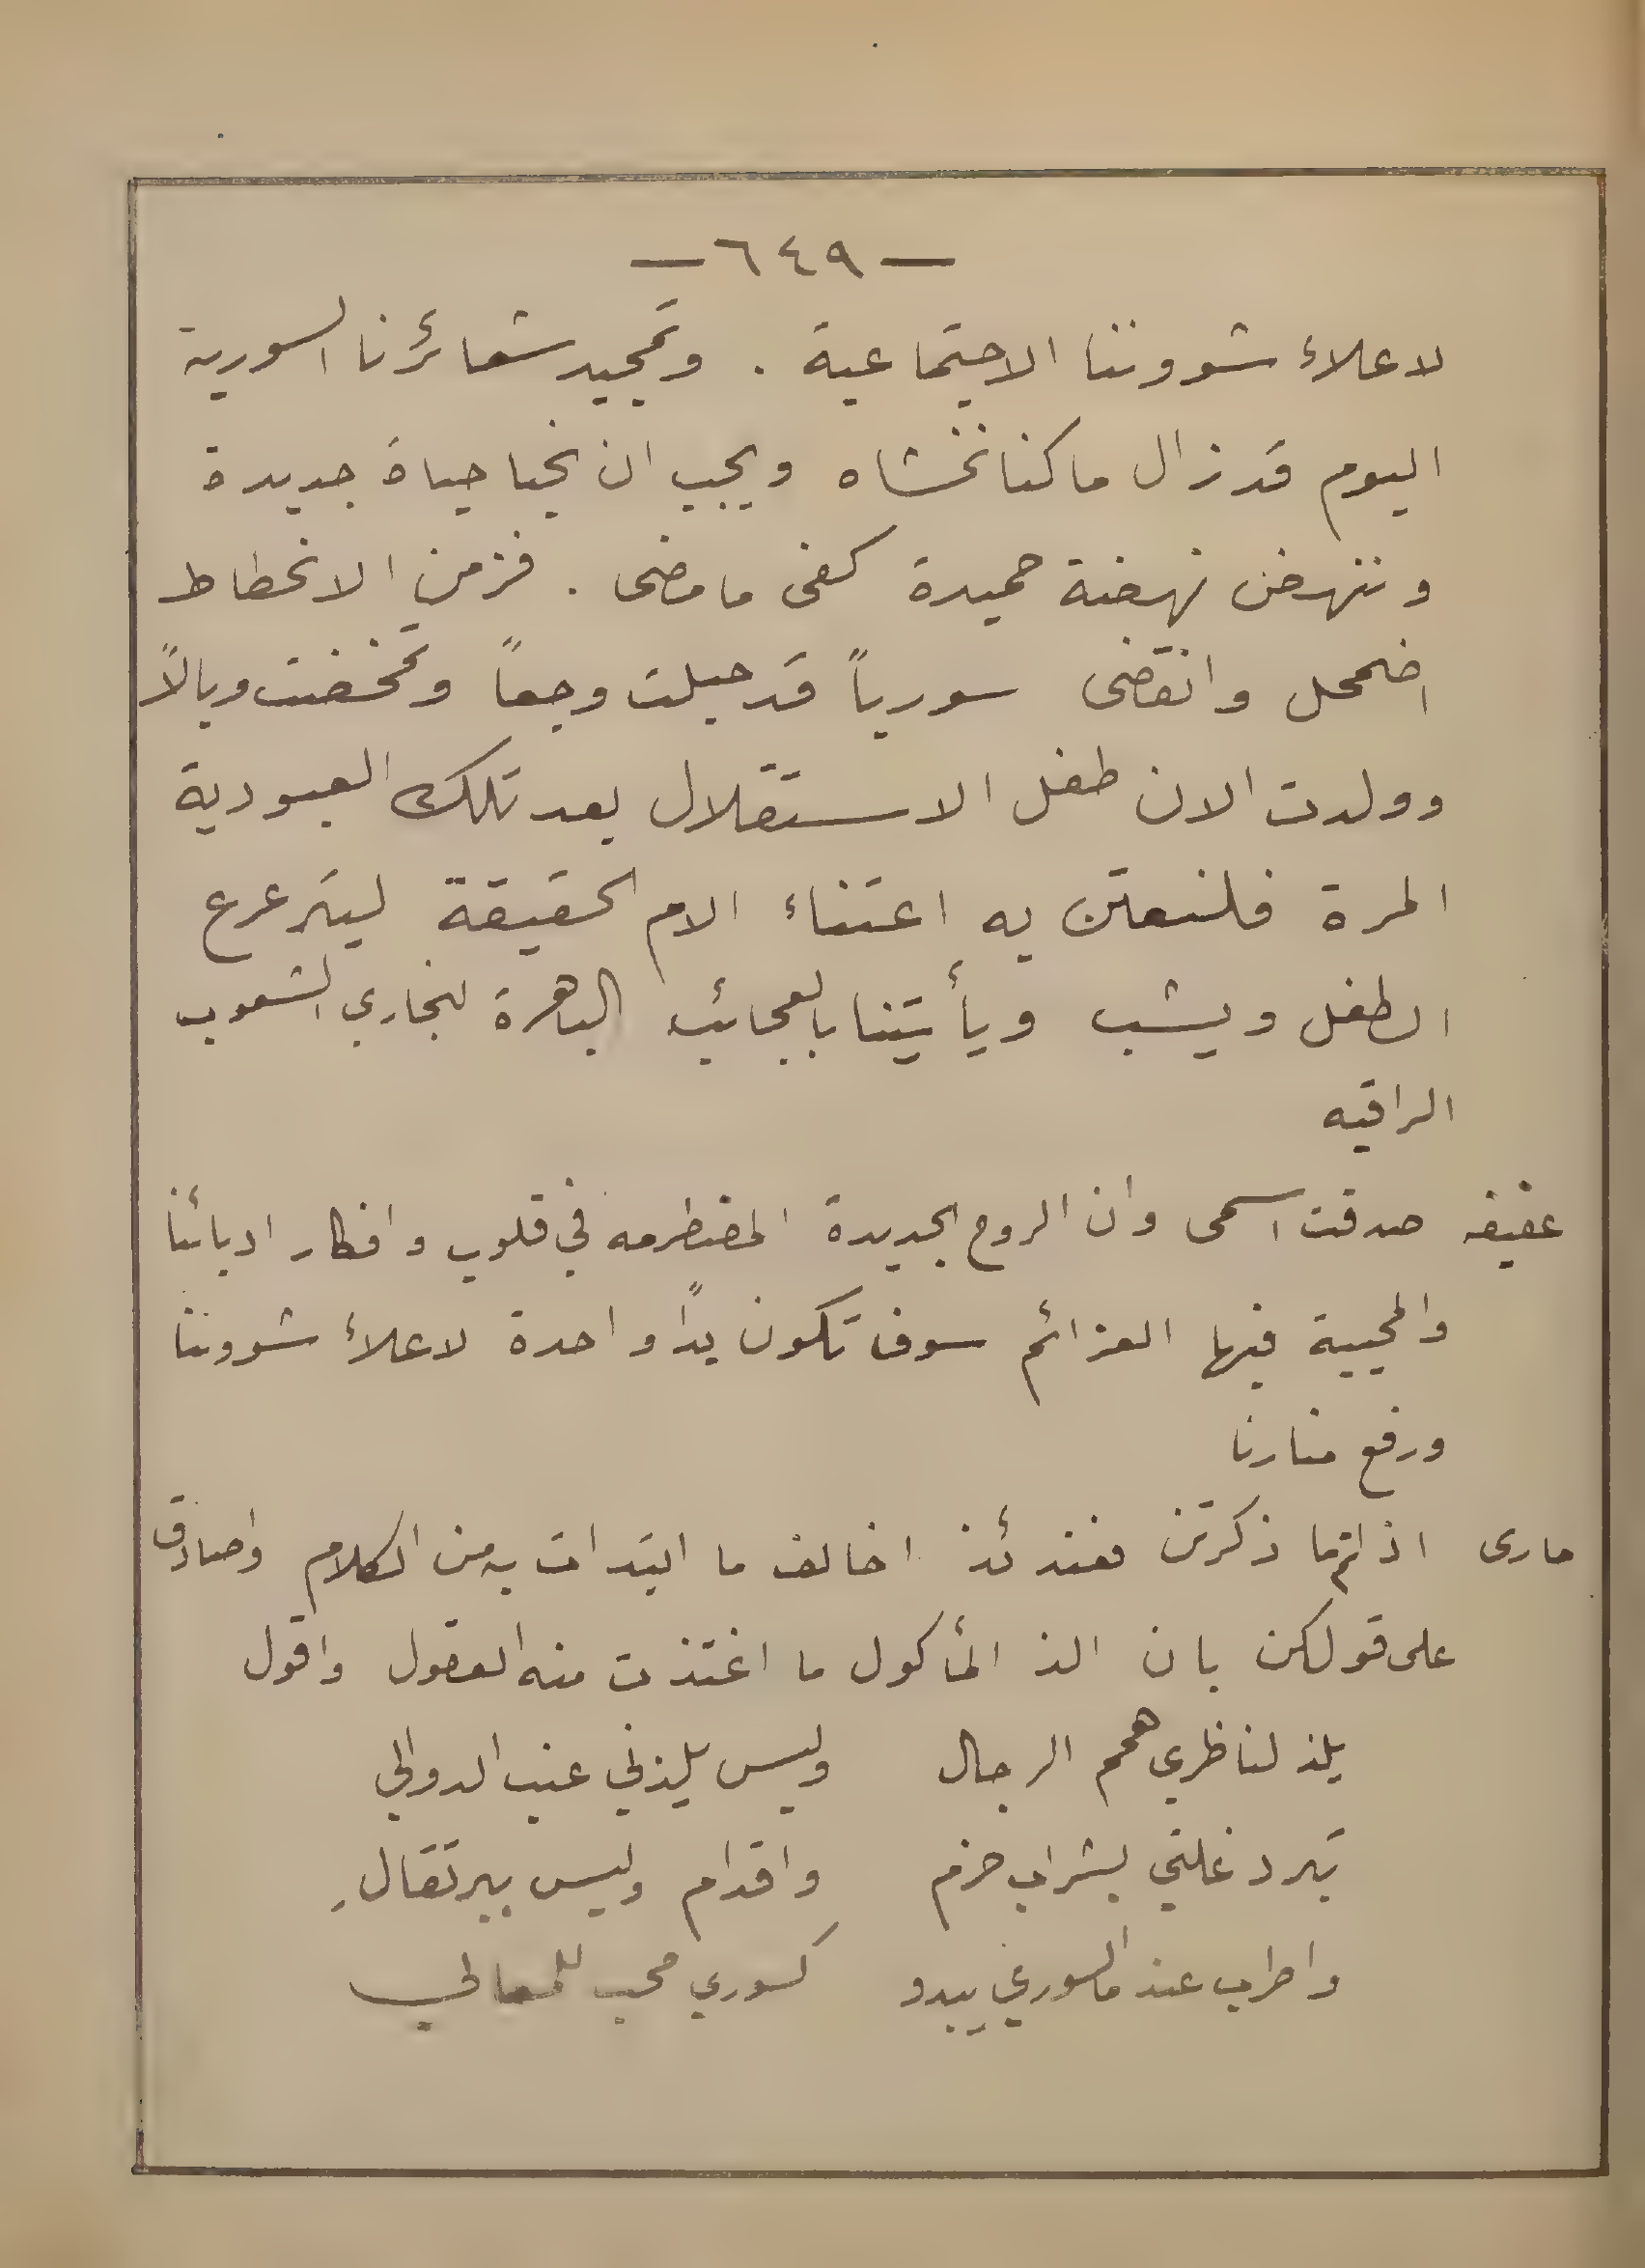 — ٦٤٩ —
لاعلاء شووننا الاجتماعية . وتمجيد شعائرنا السورية
اليوم قد زال ما كنا نخشاه ويجب ان نحيا حياة جديدة
وننهض نهضة حميدة كفى ما مضى . فزمن الانحطاط
اضمحل وانقضى سورياً قد حبلت وجعاً وتمخضت وبالاً
وولدت الان طفل الاستقلال بعد تلك العبودية
المرة فلنعتن به اعتناء الام الحقيقة ليترعرع
الطفل ويشب ويأتينا بالعجائب الباهرة لنجاري الشعوب
الراقيه
عفيفه صدقت اسمى وان الروح الجديدة المضطرمه في قلوب وافكار ادبائنا
والمحيية فيها العزائم سوف تكون يداً واحدة لاعلاء شووننا
ورفع منارنا
مارى اذا تم ما ذكرتن فعندئذ اخالف ما ابتدات به من الكلام واصادق
على قولكن بان الذ المأكول ما اغتذت منه العقول واقول
يلذ لناظري همم الرجال وليس يلذني عنب الدوالي
تبرد غلتي بشراب حزم واقدام وليس ببرتقالِ
واطرب عند ما السوري يبدو كسوري محب للمعالي